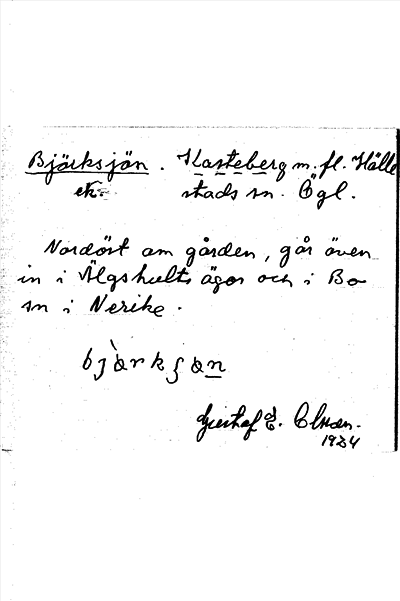 Björksjön. Kasteberg m. fl. Hälle
ek. stads sn. Ögl.
Nordöst om gården, går även
in i Älgshults ägor och i Bo
sn i Nerike.
Gustaf
1924